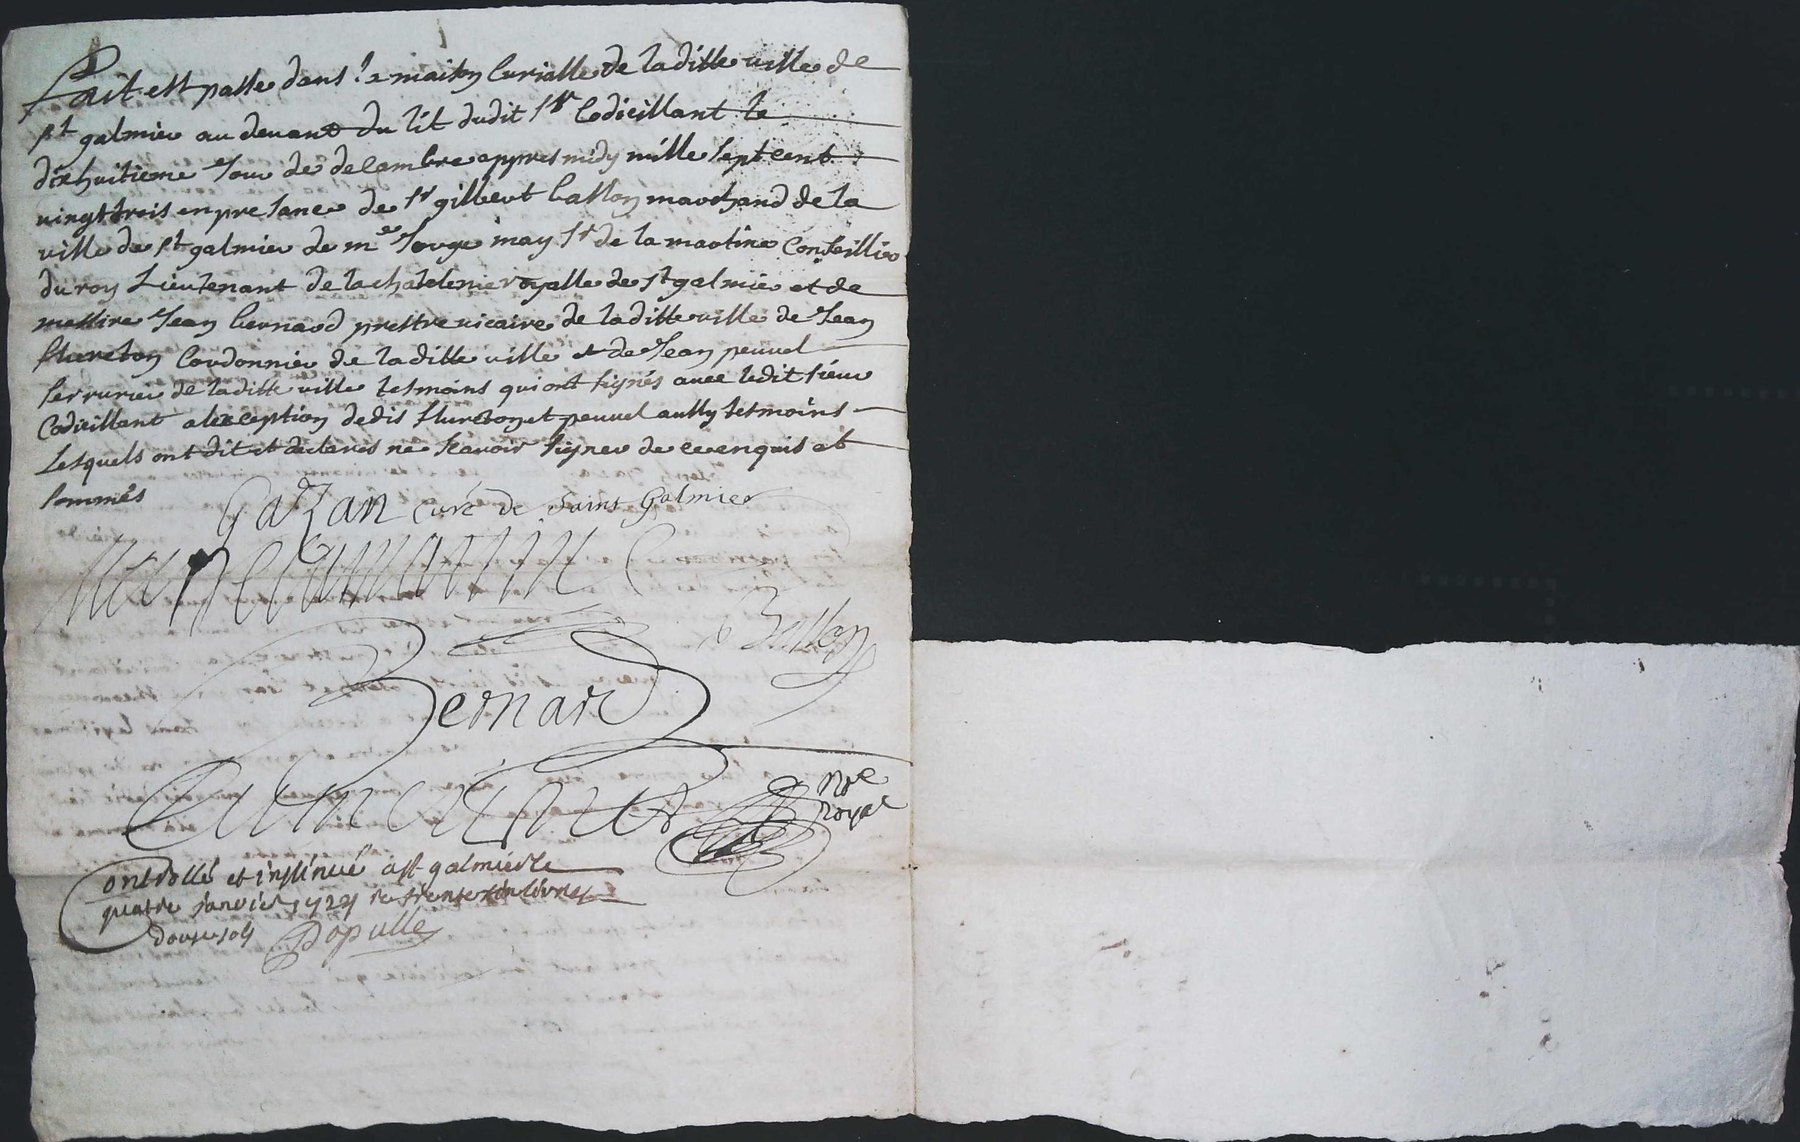 Fait et passé dans la maison Curialle de laditte ville de
St galmier au devant du lit dudit Sr Codicillant le
dixhuitieme Jour de decembre appres midy mille Sept cent
vingt trois en presance de Sr gilbert baSSon marchand de la
ville de St galmier de me may Sr de la martine Conseillier
du roy Lieutenant de la chatelenie royalle de St galmier et de
messire Jean bernard prestre vicaire de laditte ville de Jean
flureton Cordonnier de laditte ville et de Jean peuvel
Serrurier de laditte ville tesmoins qui ont signés avec ledit sieur
Codicillant a lexception desdis flureton et peuvel aussy tesmoins
Lesquels ont dit et declarés ne scavoir signer de ce enquis et
sommés
GaZan curé de Saint Galmier
may de la martine
Bernard
nore
royal
Controllé et insinué a St galmier le
quatre janvier 1724 re trente livres
douze sols